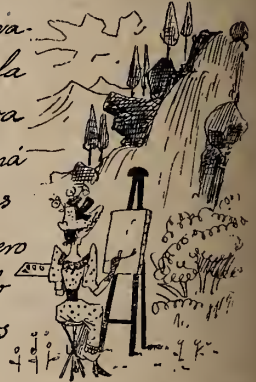 va-
la
va
ná
s
ero
o
s